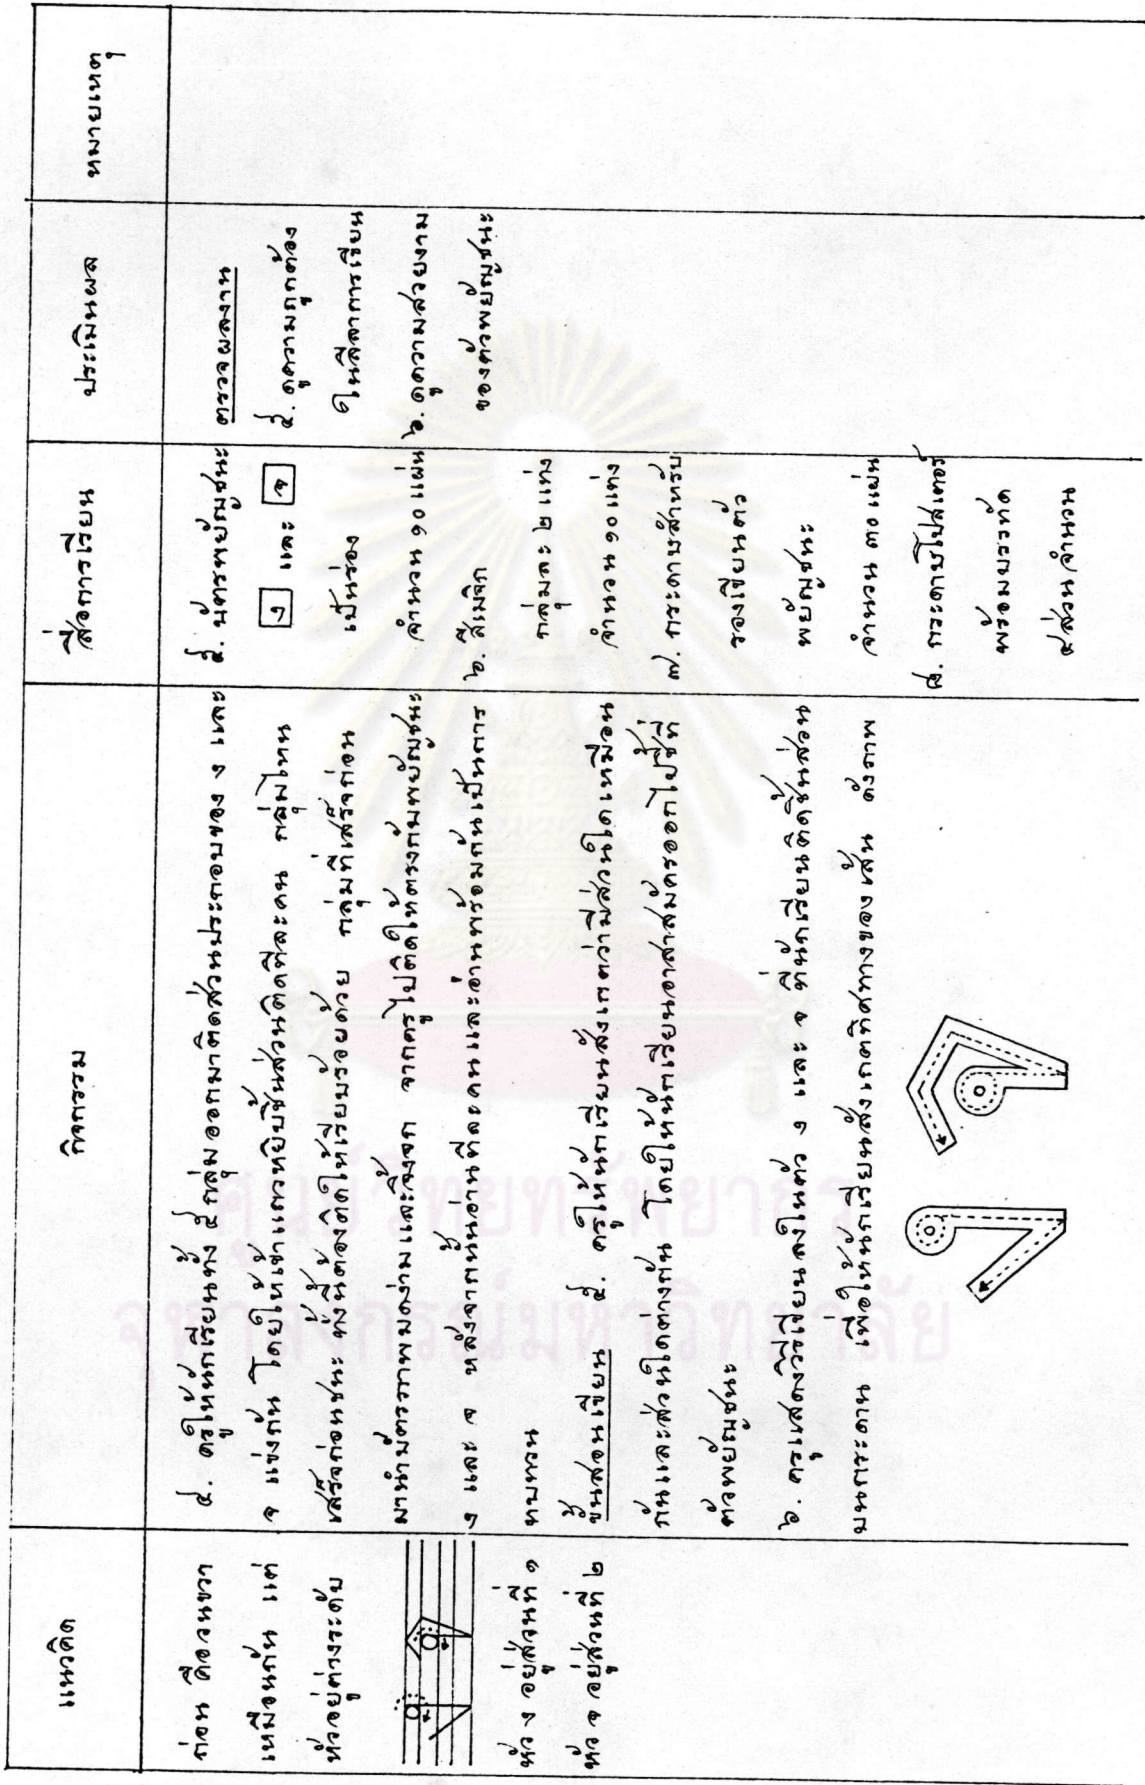 แนวคิด
กิจกรรม
สื่อการเรียน
ประเมินผล
หมายเหตุ
ก่อน คือวนขวา
เหมือนกัน แต่
หัวอยู่ต่างระดับ
หัว ง อยู่ส่วนที่ ๑
หัว จ อยู่ส่วนที่ ๒
๔. ครูให้นักเรียนทั้ง ๔ กลุ่ม ออกมาติดส่วนประกอบของ ง และ
จ แข่งกัน โดยให้เข้าแถวหยิบชิ้นส่วนติดทีละคน กลุ่มไหน
เสร็จก่อนชนะ ทั้งนี้ต้องติดให้เรียบร้อยด้วย กลุ่มที่เสร็จก่อน
มานำบัตรภาพมดง่ามและจิ้งจก จากครูไปติดให้ตรงกับพยัญชนะ
ง และ จ หลังจากนั้นอ่านทีละคนและอ่านพร้อมกันเป็นการ
ทบทวน
ขั้นสอนเขียน ๕. ครูให้นักเรียนสังเกตว่ามีส่วนใดเหมือน
กันและส่วนใดต่างกัน โดยให้นักเรียนอาสาสมัครออกไปชี้ที่
ตัวพยัญชนะ
๖. ครูแสดงวิธีเขียนลงในตัว ง และ จ ที่นักเรียนติดชิ้นส่วน
บนกระดาน เพื่อให้นักเรียนสังเกตทิศทางของเส้น ดังภาพ
๕. บัตรพยัญชนะ
ง และ จ
เป็นร่อง
จำนวน ๑๐ แผ่น
๖. สีเมจิก
กลุ่มละ ๒ แท่ง
จำนวน ๑๐ แท่ง
๗. กระดาษสำหรับ
รองเขียนตัว
พยัญชนะ
จำนวน ๓๐ แผ่น
๘. กระดาษโปสเตอร์
พร้อมบรรทัด
๔ ส่วน จำนวน
ตรวจผลงาน
๕. ดูความถูกต้อง
ในลีลาการเขียน
๖. ดูความสวยงาม
ของตัวพยัญชนะ
ศูนย์วิทยทรัพยากร
จุฬาลงกรณ์มหาวิทยาลัย